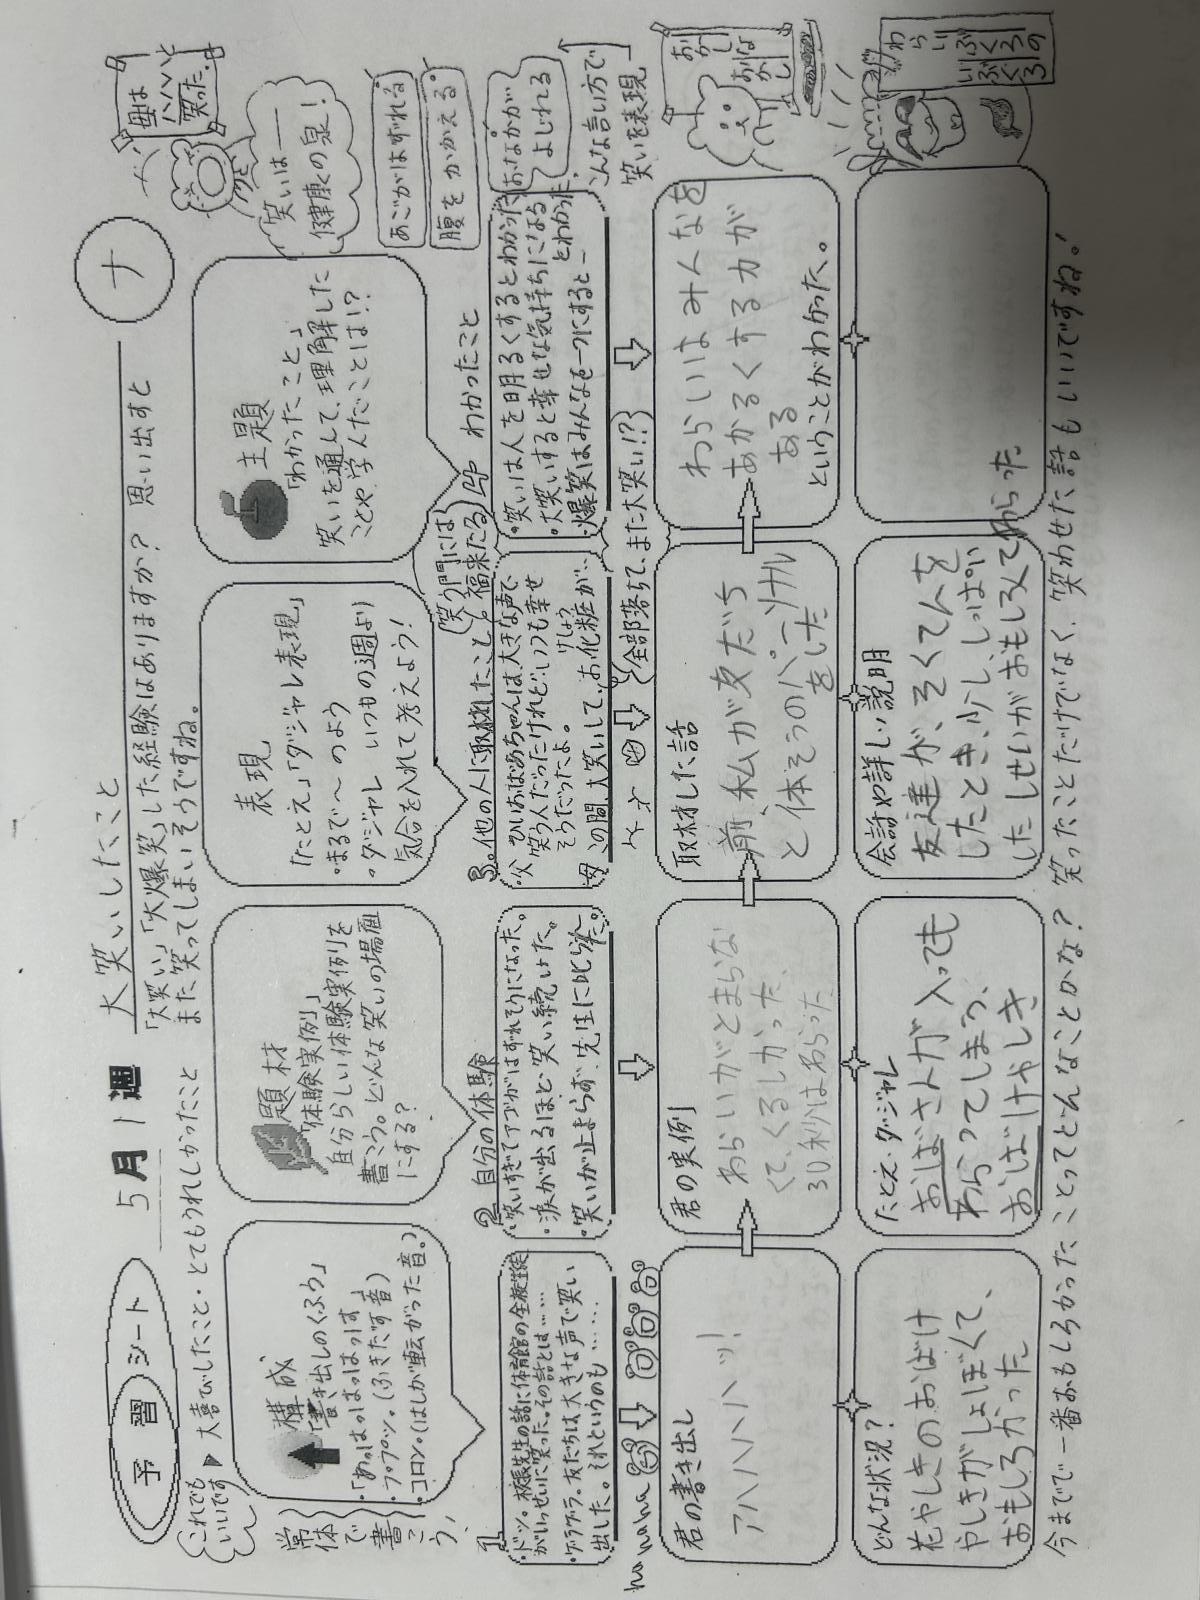 予習シート
5月1週
大笑いしたこと
ナ
これでも
いいです
▶大喜びしたこと・とてもうれしかったこと
「大笑い」「大爆笑」した経験はありますか？ 思い出すと
また笑ってしまいそうですね。
母は
ハハハと
笑った。
常体で書こう！
構成
「書き出しのくふう」
・「あっはっはっはっ」
・フプッ。(ふきだす音)
・コロン。(はしが転がった音。)
題材
「体験実例」
自分らしい体験実例を
書こう。どんな笑いの場面
にする？
表現
「たとえ」「ダジャレ表現」
・まるで〜のよう
・ダジャレ いつもの週より
気合を入れて考えよう！
主題
「わかったこと」
笑いを通して、理解した
ことや学んだことは!?
笑いは──
健康の泉！
あごがはずれる
腹をかかえる
おなかが
よじれる
こんな言い方で
笑いを表現
1
・ドッ。校長先生の話に体育館の全校生徒
がいっせいに笑った。その話とは……
・ゲラゲラ。友だちは大きな声で笑い
出した。それというのも……
2 自分の体験
・笑いすぎてアゴがはずれそうになった。
・涙が出るほど笑い続けた。
・笑いが止まらず、先生に叱られた。
笑う門には
福来たる
3。他の人に取材したこと。
・父 ひいおばあちゃんは、大きな声で
笑う人だったけれど、いつも幸せ
そうだったよ。
母 この間、大笑いして、お化粧が、
けしょう
全部落ちて、また大笑い!?
わかったこと
・笑いは人を明るくするとわかった
・大笑いすると幸せな気持ちになる
とわかった。
・爆笑はみんなを一つにすると─
ha ha ha
君の書き出し
アハハハハッ！
君の実例
わらいがとまらな
くて、くるしかった、
30秒はわらった
取材した話
前、私が友だち
と体そうのパーソナル
をした
わらいはみんなを
あかるくする力が
ある
ということがわかった。
おかしい
おなかし
どんな状況？
花やしきのおばけ
やしきがしょぼくて、
おもしろかった
たとえ・ダジャレ
おばさんが入っても
わらってしまう、
おばけやしき
会話や詳しい説明
友達が、そくてんを
したとき、少し、しっぱい
したしせいがおもしろくてわらった
わらい
ぶくろ
今までで一番おもしろかったことってどんなことかな？ 笑ったことだけでなく、笑わせた話もいいですね！